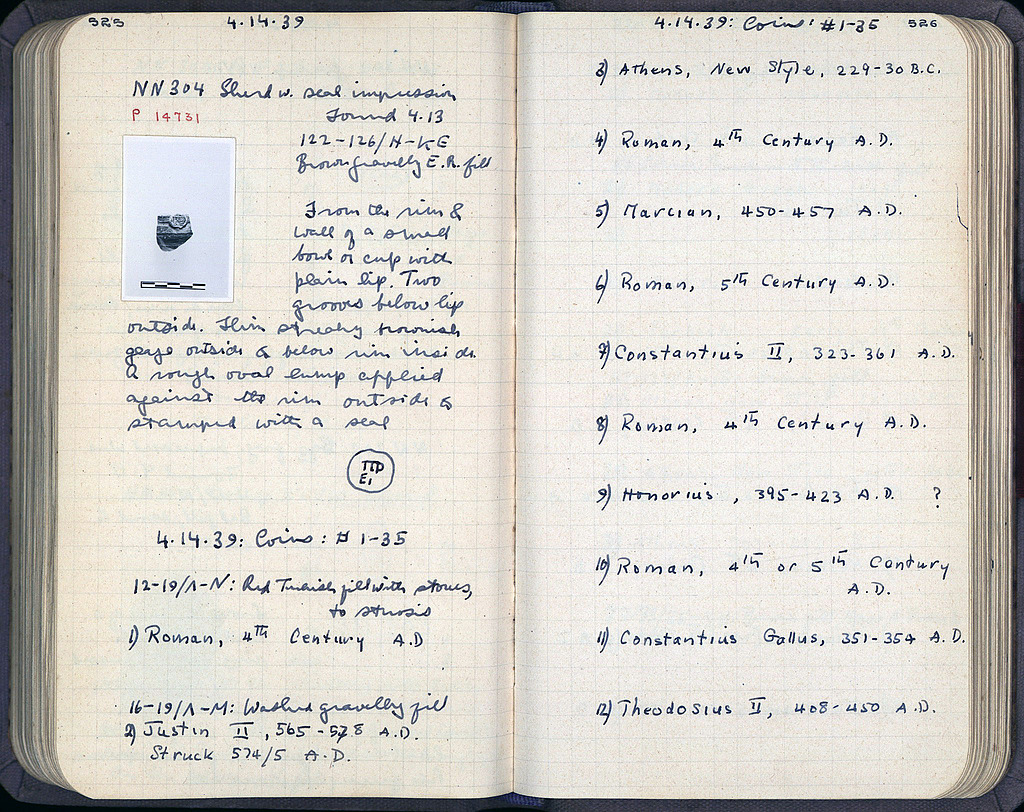 525
4.14.39
NN304 Sherd w. seal impression
P 14731
Found 4.13
122-126/H-KE
Brown gravelly E.R. fill
From the rim &
wall of a small
bowl or cup with
plain lip. Two
grooves below lip
outside. Thin streaky brownish
glaze outside & below rim inside.
A rough oval lump applied
against the rim outside &
stamped with a seal
ΠΡ
ΕΙ
4.14.39: Coins: #1-35
12-19/Λ-Ν: Red Turkish fill with stones,
to strosis
1) Roman, 4th Century A.D
16-19/Λ-Μ: Washed gravelly fill
2) Justin II, 565-578 A.D.
Struck 574/5 A.D.
4.14.39: Coins: #1-35
526
3) Athens, New Style, 229-30 B.C.
4) Roman, 4th Century A.D.
5) Marcian, 450-457 A.D.
6) Roman, 5th Century A.D.
7) Constantius II, 323-361 A.D.
8) Roman, 4th Century A.D.
9) Honorius, 395-423 A.D. ?
10) Roman, 4th or 5th Century
A.D.
11) Constantius Gallus, 351-354 A.D.
12) Theodosius II, 408-450 A.D.